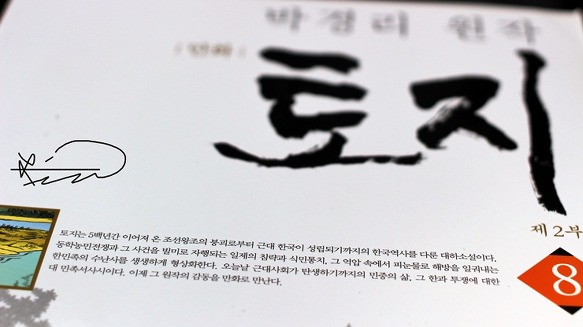 박경리 원작
만화
토지
제2부
8
토지는 5백년간 이어져 온 조선왕조의 붕괴로부터 근대 한국이 성립되기까지의 한국역사를 다룬 대하소설이다.
동학농민전쟁과 그 사건을 빌미로 자행되는 일제의 침략과 식민통지, 그 억압 속에서 피눈물로 해방을 일궈내는
한민족의 수난사를 생생하게 형상화한다. 오늘날 근대사회가 탄생하기까지의 민중의 삶, 그 한과 투쟁에 대한
대 민족서사시이다. 이제 그 원작의 감동을 만화로 만난다.